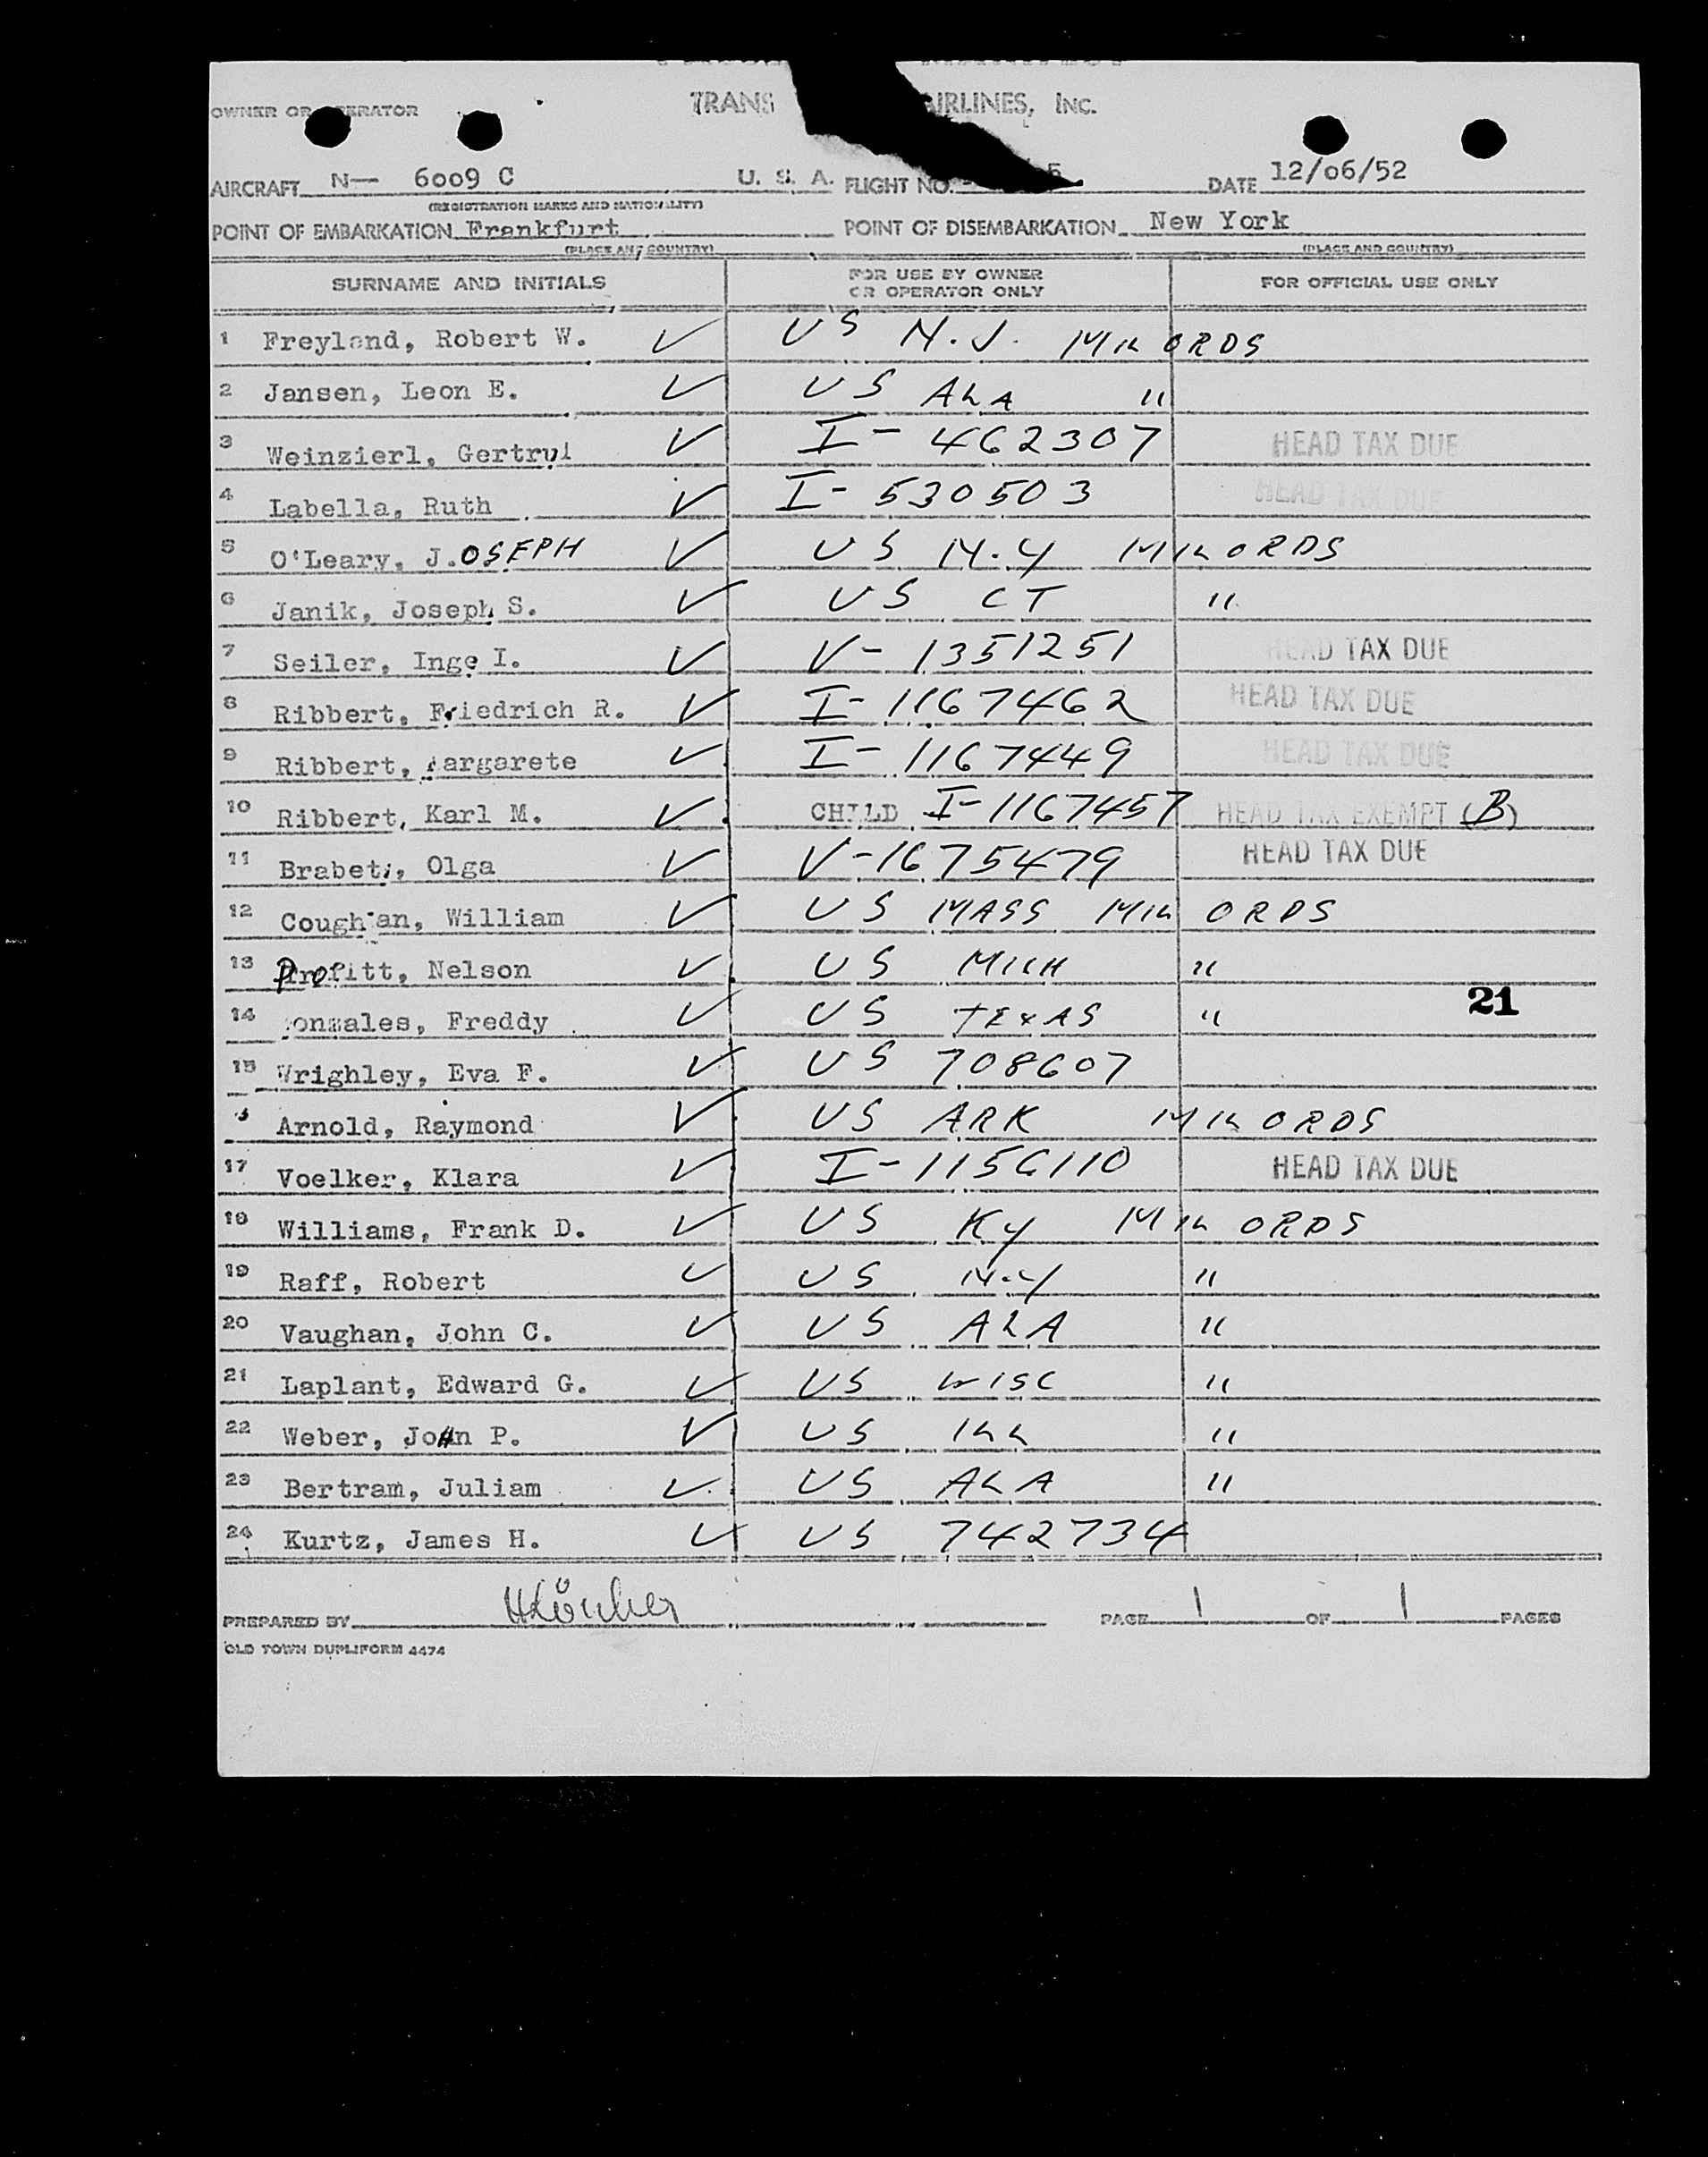 OWNER OR OPERATOR TRANS AIRLINES, INC.
AIRCRAFT N— 6009 C U. S. A. FLIGHT NO. 5 DATE 12/06/52
(REGISTRATION MARKS AND NATIONALITY)
POINT OF EMBARKATION Frankfurt POINT OF DISEMBARKATION New York
(PLACE AND COUNTRY) (PLACE AND COUNTRY)
SURNAME AND INITIALS FOR USE BY OWNER OR OPERATOR ONLY FOR OFFICIAL USE ONLY
1 Freyland, Robert W. ✓ US N.J. MIL ORDS
2 Jansen, Leon E. ✓ US ALA "
3 Weinzierl, Gertrul ✓ I- 462307 HEAD TAX DUE
4 Labella, Ruth ✓ I- 530503 HEAD TAX DUE
5 O'Leary, J.OSEPH ✓ US N.Y MIL ORDS
6 Janik, Joseph S. ✓ US CT "
7 Seiler, Inge I. ✓ V- 1351251 HEAD TAX DUE
8 Ribbert, Friedrich R. ✓ I- 1167462 HEAD TAX DUE
9 Ribbert, Margarete ✓ I- 1167449 HEAD TAX DUE
10 Ribbert, Karl M. ✓ CHILD I- 1167457 HEAD TAX EXEMPT (B)
11 Olga ✓ V-1675479 HEAD TAX DUE
12 Coughlan, William ✓ US MASS MIL ORDS
13 Profitt, Nelson ✓ US MICH "
14 Gonzales, Freddy ✓ US TEXAS " 21
15 Wrighley, Eva F. ✓ US 708607
Arnold, Raymond ✓ US ARK MIL ORDS
17 Voelker, Klara ✓ I-1156110 HEAD TAX DUE
18 Williams, Frank D. ✓ US KY MIL ORDS
19 Raff, Robert ✓ US N.Y "
20 Vaughan, John C. ✓ US ALA "
21 Laplant, Edward G. ✓ US WISC "
22 Weber, JoHn P. ✓ US ILL "
23 Bertram, Juliam ✓ US ALA "
24 Kurtz, James H. ✓ US 742734
PREPARED BY PAGE 1 OF 1 PAGES
OLD TOWN DUPLIFORM 4474